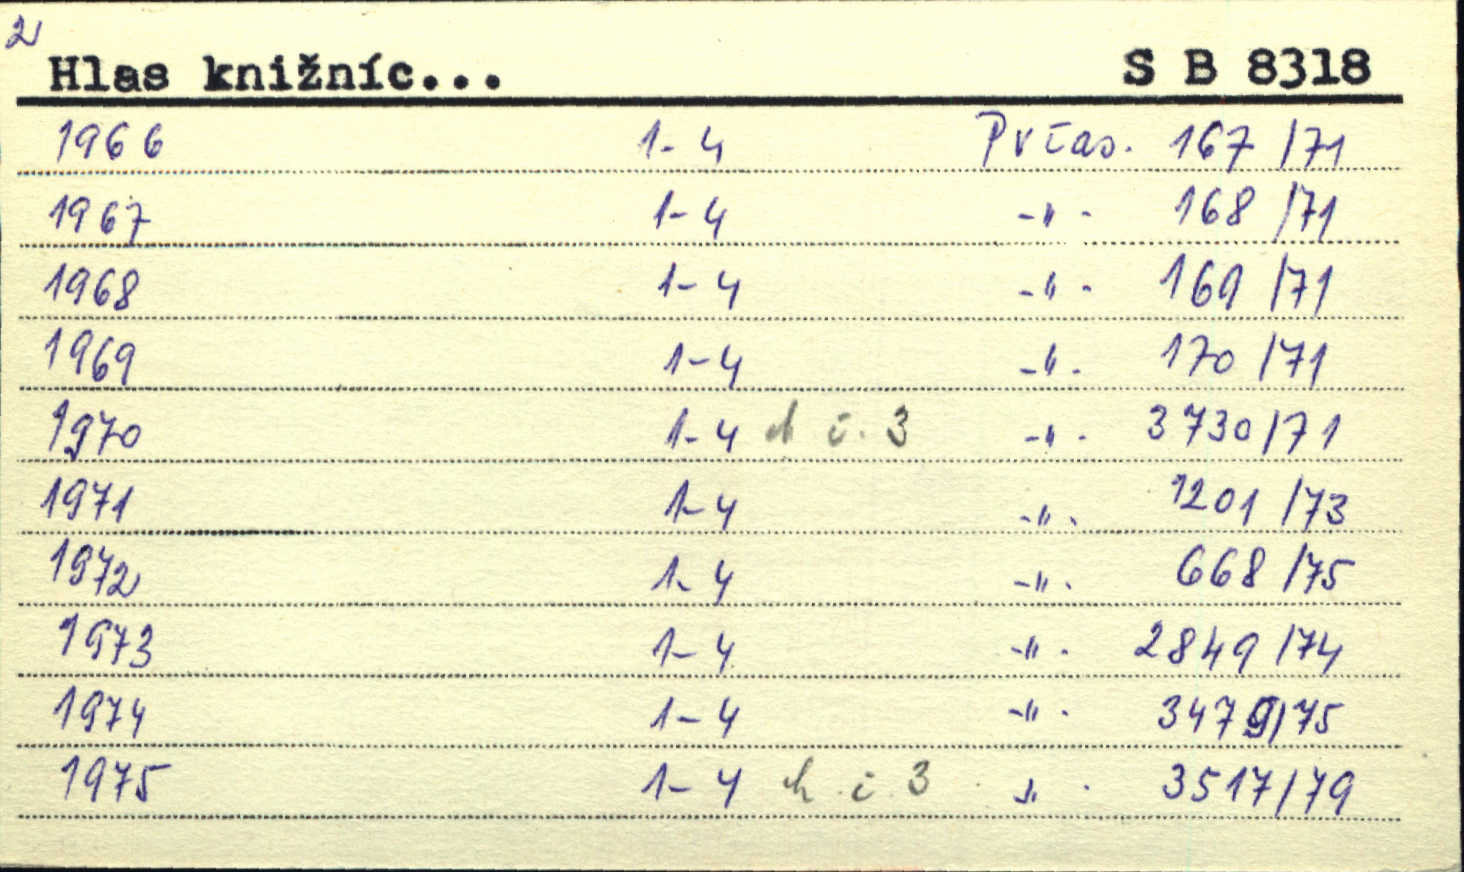 2
Hlas knižníc... S B 8318
1966 1-4 Prčas. 167/71
1967 1-4 -"- 168/71
1968 1-4 -"- 169/71
1969 1-4 -"- 170/71
1970 1-4 č. 3 -"- 3730/71
1971 1-4 -"- 1201/73
1972 1-4 -"- 668/75
1973 1-4 -"- 2849/74
1974 1-4 -"- 3479/75
1975 1-4 č. 3 -"- 3517/79